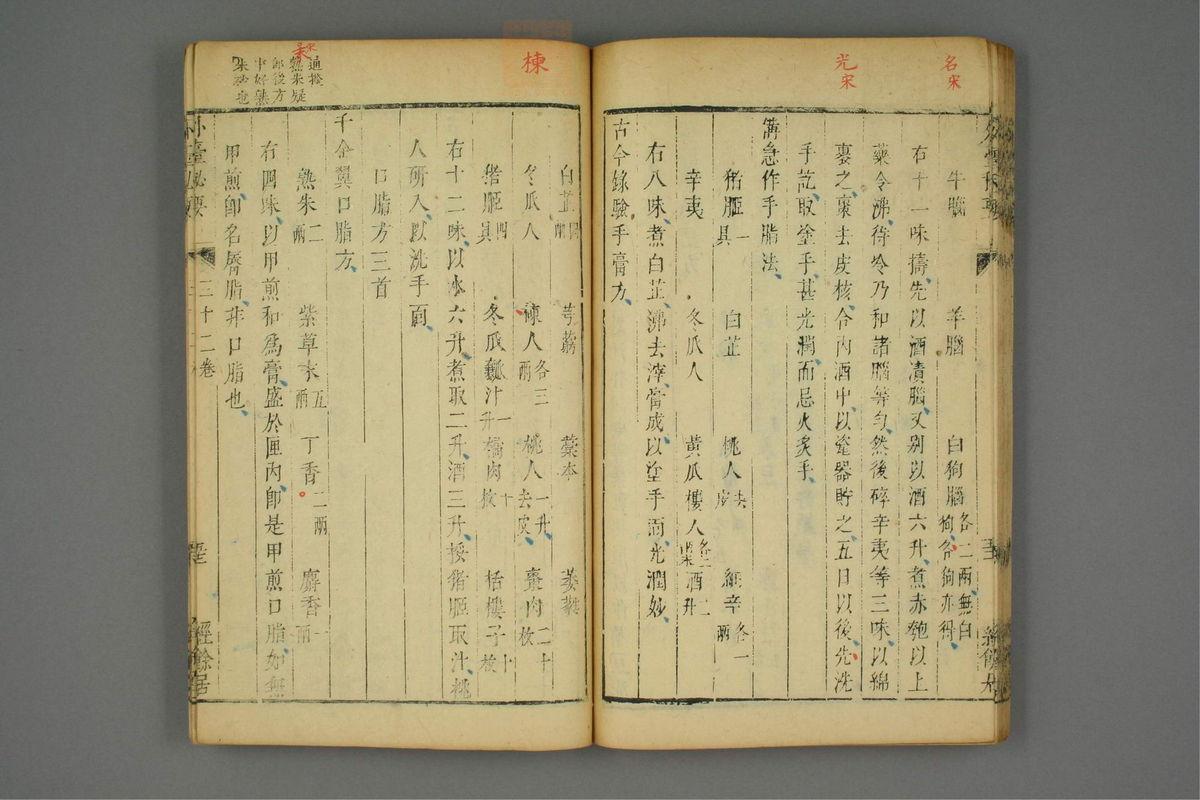 名宋
光宋
牛腦　羊腦　白狗腦各二兩無白狗各狗亦得
右十一味擣先以酒漬腦又别以酒六升煮赤匏以上
藥令沸待冷乃和諸腦等勻然後碎辛夷等三味以綿
裹之棗去皮核合內酒中以瓷器貯之五日以後先洗
手訖取塗手甚光潤而忌火炙手
備急作手脂法
猪胵一具　白芷　桃人去皮　細辛各一兩
辛夷　冬瓜人　黃瓜樓人各二　酒二升
右八味煮白芷沸去滓膏成以塗手面光潤妙
古今錄驗手膏方
棟
白芷四兩　芎藭　藁本　萎蕤
冬瓜人　楝人各三兩　桃人一升去皮　棗肉二十枚
猪胵四具　冬瓜瓤汁一升　橘肉十枚　栝樓子十枚
右十二味以水六升煮取二升酒三升挼猪胵取汁桃
人研入以洗手面
口脂方三首
千金翼口脂方
熟朱二兩　紫草末五兩　丁香二兩　麝香一兩
右四味以甲煎和爲膏盛於匣內卽是甲煎口脂如無
甲煎卽名脣脂非口脂也
熟朱疑
卽後方
中好熟
朱砂也
外臺秘要
三十二卷
經餘居